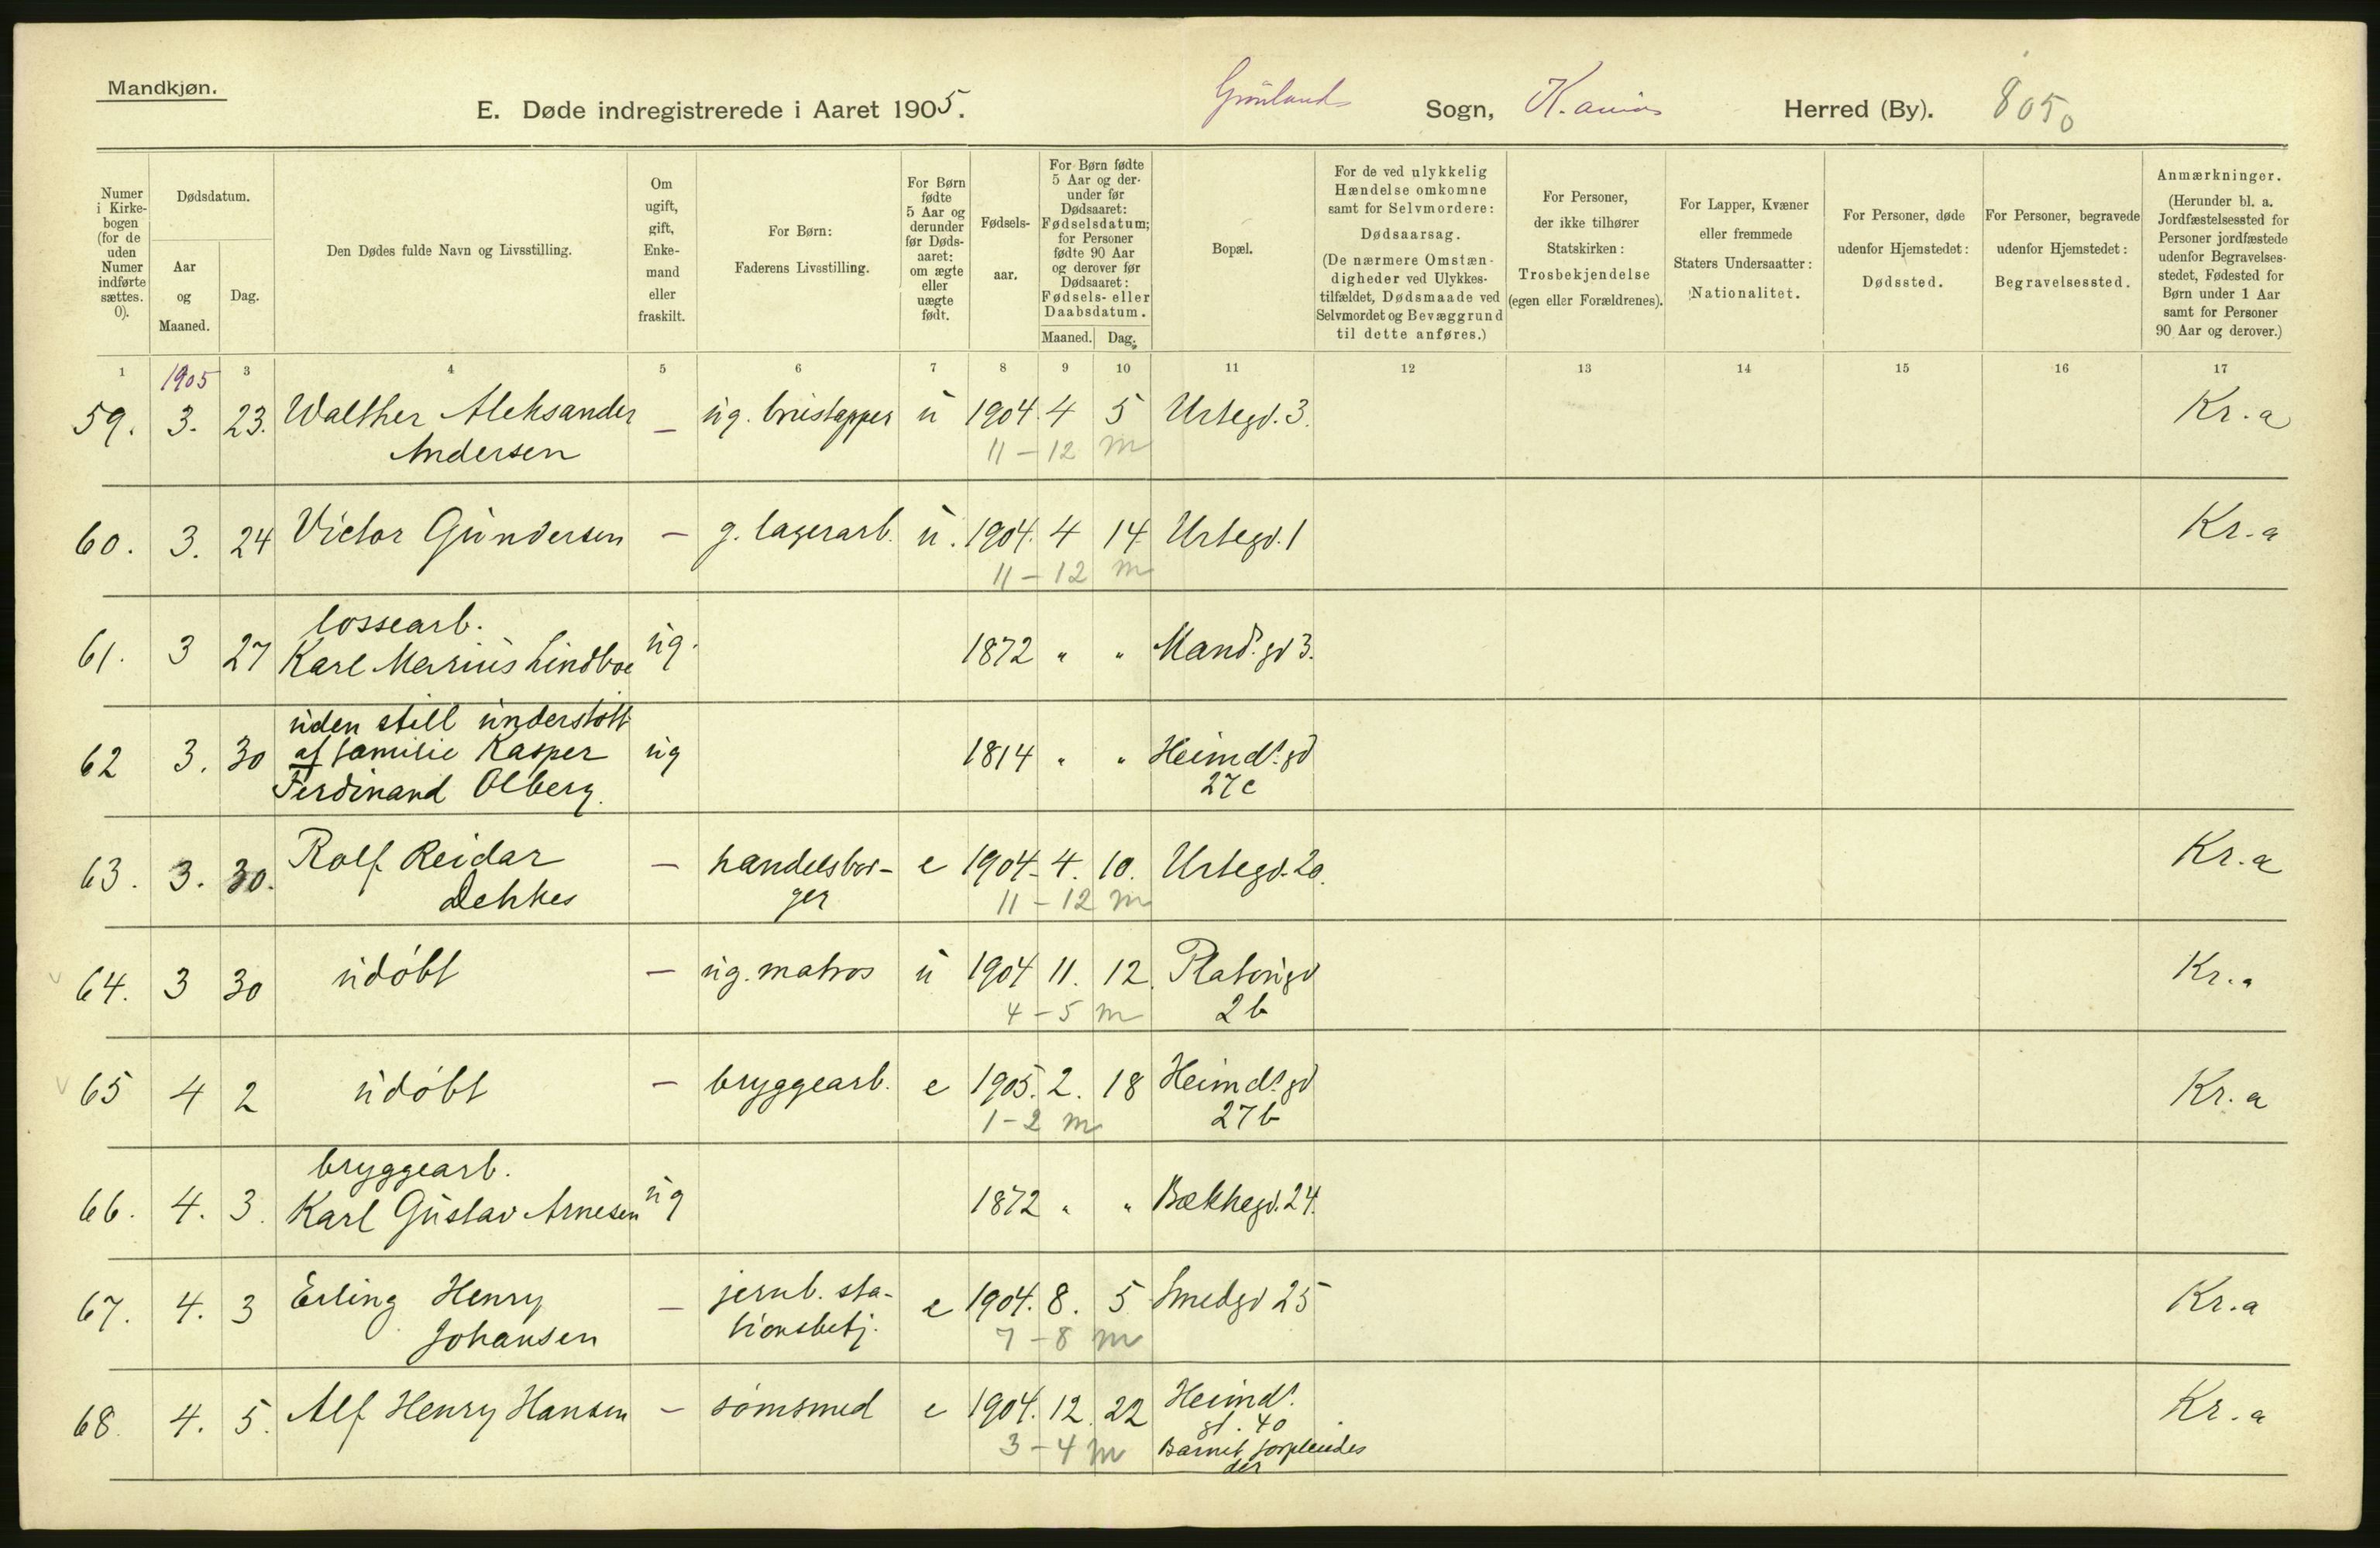 Mandkjøn.
E. Døde indregistrerede i Aaret 1905. Grønlands Sogn, K.ania Herred (By). 8050
Numer i Kirkebogen (for de uden Numer indførte sættes. 0).
Dødsdatum.
Aar og Maaned.
Dag.
Den Dødes fulde Navn og Livsstilling.
Om ugift, gift, Enkemand eller fraskilt.
For Børn: Faderens Livsstilling.
For Børn fødte 5 Aar og derunder før Dødsaaret: om ægte eller uægte født.
Fødselsaar.
For Børn fødte 5 Aar og derunder før Dødsaaret: Fødselsdatum; for Personer fødte 90 Aar og derover før Dødsaaret: Fødsels- eller Daabsdatum.
Maaned. Dag.
Bopæl.
For de ved ulykkelig Hændelse omkomne samt for Selvmordere: Dødsaarsag. (De nærmere Omstændigheder ved Ulykkestilfældet, Dødsmaade ved Selvmordet og Bevæggrund til dette anføres.)
For Personer, der ikke tilhører Statskirken: Trosbekjendelse (egen eller Forældrenes).
For Lapper, Kvæner eller fremmede Staters Undersaatter: Nationalitet.
For Personer, døde udenfor Hjemstedet: Dødssted.
For Personer, begravede udenfor Hjemstedet: Begravelsessted.
Anmærkninger. (Herunder bl. a. Jordfæstelsessted for Personer jordfæstede udenfor Begravelsesstedet, Fødested for Børn under 1 Aar samt for Personer 90 Aar og derover.)
1 3 4 5 6 7 8 9 10 11 12 13 14 15 16 17
1905
59. 3. 23. Walther Aleksander — ug. brustapper u 1904. 4 5 Urtegd. 3. Kr.a
Andersen 11 – 12 m
60. 3. 24 Victor Gundersen — g. lagerarb. u. 1904. 4 14. Urtegd. 1 Kr.a
11 – 12 m
lossearb.
61. 3 27 Karl Marius Lindboe ug. 1872 " " Mand. gd 3.
uden still understøtt
62 3. 30 af familie Kasper ug 1814 " " Heimdt. gd
Ferdinand Olberg. 27c
63. 3. 30. Rolf Reidar — handelsbor- e 1904. 4. 10. Urtegd. 20. Kr.a
Dehkes ger 11 – 12 m
64. 3 30 udøbt — ug. matros u 1904 11. 12. Platougd Kr.a
4 – 5 m 2b
65 4 2 udøbt — bryggearb. e 1905. 2. 18 Heimdt. gd Kr.a
1 – 2 m 27b
bryggearb.
66. 4. 3. Karl Gustav Arnesen ug 1872 " " Bækkegd. 24.
67. 4. 3 Erling Henry — jernb. sta- e 1904. 8. 5 Smedgd 25 Kr.a
Johansen tionsbetj. 7 – 8 m
68. 4. 5. Alf Henry Hansen — sømsmed e 1904. 12. 22 Heimdt. Kr.a
gd. 40
3 – 4 m Barnet forpleiedes
der